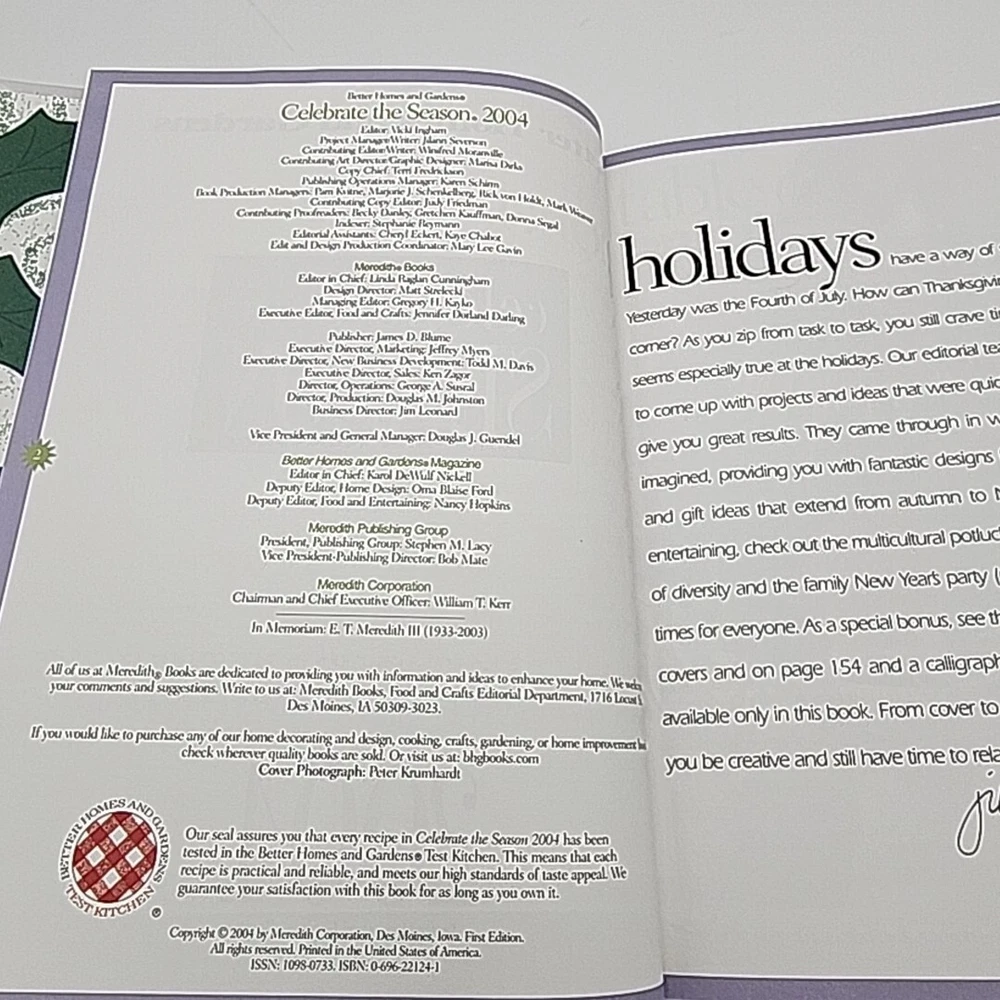 Better Homes and Gardens®
Celebrate the Season® 2004
Editor: Vicki Ingham
Project Manager/Writer: Jilann Severson
Contributing Editor/Writer: Winifred Moranville
Contributing Art Director/Graphic Designer: Marisa Dirks
Copy Chief: Terri Fredrickson
Publishing Operations Manager: Karen Schirm
Book Production Managers: Pam Kvitne, Marjorie J. Schenkelberg, Rick von Holdt, Mark
Contributing Copy Editor: Judy Friedman
Contributing Proofreaders: Becky Danley, Gretchen Kauffman, Donna Segal
Indexer: Stephanie Reymann
Editorial Assistants: Cheryl Eckert, Kaye Chabot
Edit and Design Production Coordinator: Mary Lee Gavin
Meredith® Books
Editor in Chief: Linda Raglan Cunningham
Design Director: Matt Strelecki
Managing Editor: Gregory H. Kayko
Executive Editor, Food and Crafts: Jennifer Dorland Darling
Publisher: James D. Blume
Executive Director, Marketing: Jeffrey Myers
Executive Director, New Business Development: Todd M. Davis
Executive Director, Sales: Ken Zagor
Director, Operations: George A. Susral
Director, Production: Douglas M. Johnston
Business Director: Jim Leonard
Vice President and General Manager: Douglas J. Guendel
Better Homes and Gardens® Magazine
Editor in Chief: Karol DeWulf Nickell
Deputy Editor, Home Design: Oma Blaise Ford
Deputy Editor, Food and Entertaining: Nancy Hopkins
Meredith Publishing Group
President, Publishing Group: Stephen M. Lacy
Vice President-Publishing Director: Bob Mate
Meredith Corporation
Chairman and Chief Executive Officer: William T. Kerr
In Memoriam: E. T. Meredith III (1933-2003)
All of us at Meredith® Books are dedicated to providing you with information and ideas to enhance your home. We
your comments and suggestions. Write to us at: Meredith Books, Food and Crafts Editorial Department, 1716 Locust
Des Moines, IA 50309-3023.
If you would like to purchase any of our home decorating and design, cooking, crafts, gardening, or home improvement
check wherever quality books are sold. Or visit us at: bhgbooks.com
Cover Photograph: Peter Krumhardt
BETTER HOMES AND GARDENS
TEST KITCHEN ®
Our seal assures you that every recipe in Celebrate the Season 2004 has been
tested in the Better Homes and Gardens® Test Kitchen. This means that each
recipe is practical and reliable, and meets our high standards of taste appeal. We
guarantee your satisfaction with this book for as long as you own it.
Copyright © 2004 by Meredith Corporation, Des Moines, Iowa. First Edition.
All rights reserved. Printed in the United States of America.
ISSN: 1098-0733. ISBN: 0-696-22124-1
2
holidays have a way of
Yesterday was the Fourth of July. How can Thanksgivi
corner? As you zip from task to task, you still crave ti
seems especially true at the holidays. Our editorial tea
to come up with projects and ideas that were quic
give you great results. They came through in w
imagined, providing you with fantastic designs
and gift ideas that extend from autumn to N
entertaining, check out the multicultural potluc
of diversity and the family New Year's party (
times for everyone. As a special bonus, see th
covers and on page 154 and a calligraph
available only in this book. From cover to
you be creative and still have time to rela